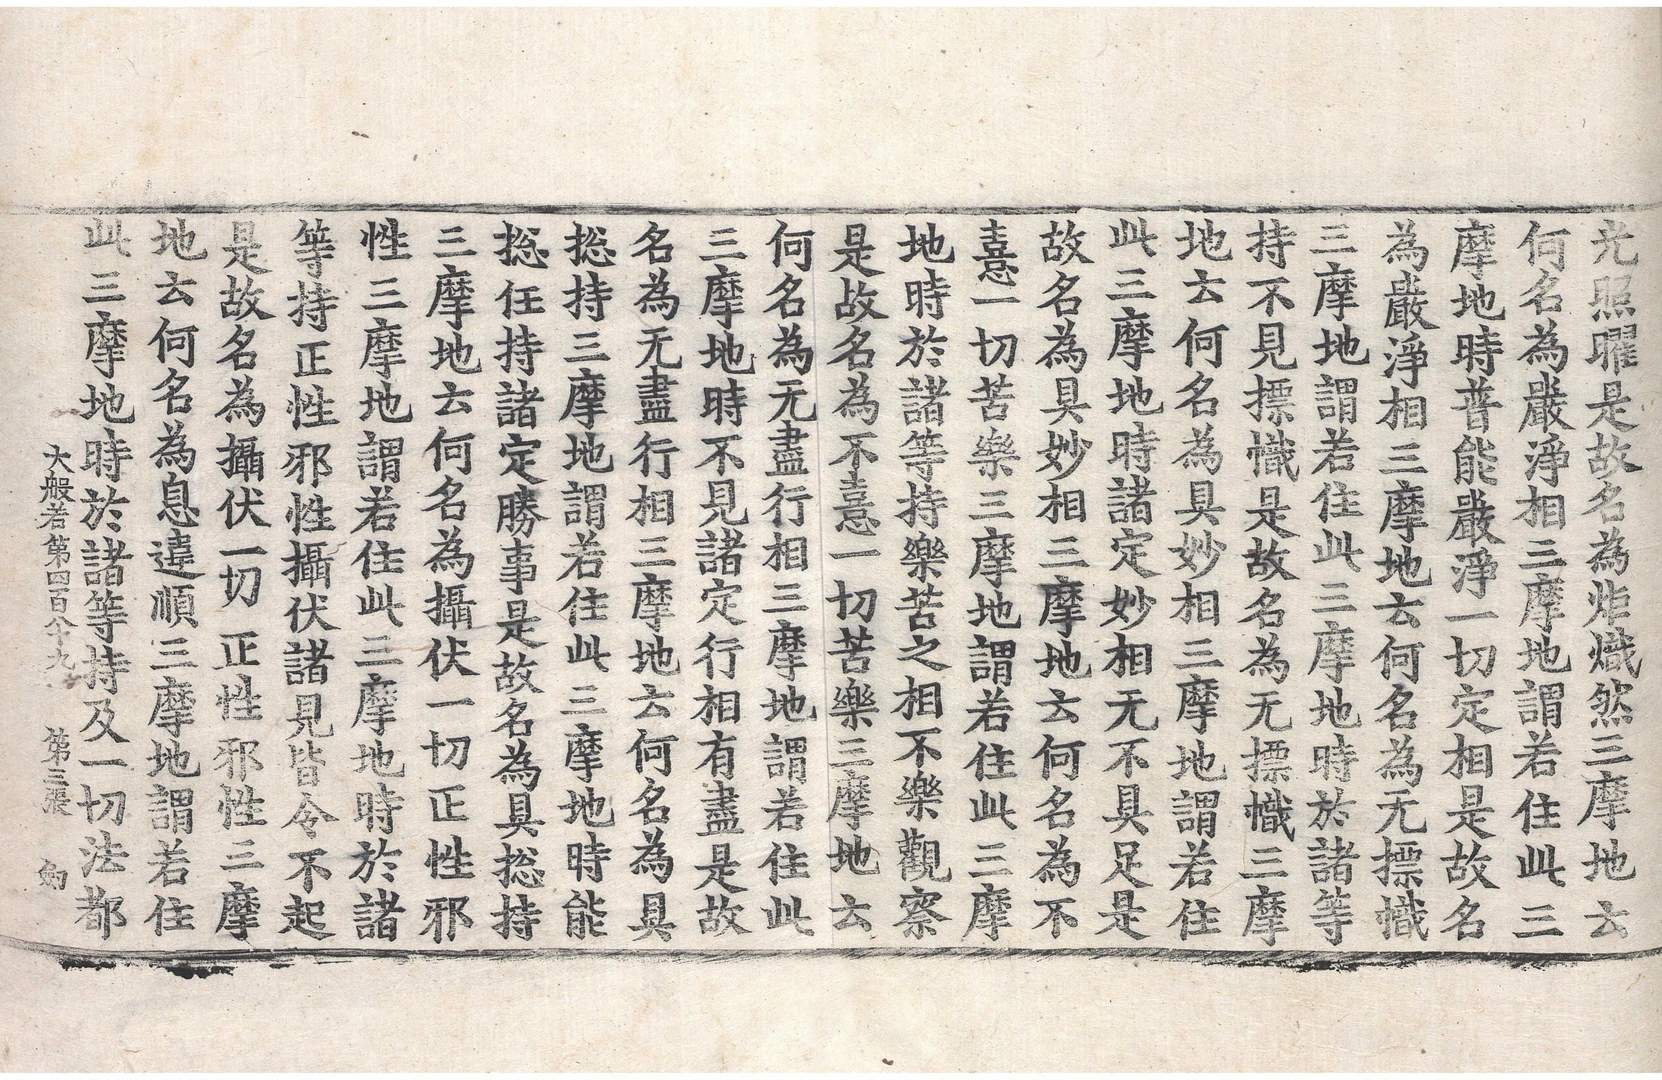 光照曜是故名為炬熾然三摩地云
何名為嚴淨相三摩地謂若住此三
摩地時普能嚴淨一切定相是故名
為嚴淨相三摩地云何名為无摽幟
三摩地謂若住此三摩地時於諸等
持不見摽幟是故名為无摽幟三摩
地云何名為具妙相三摩地謂若住
此三摩地時諸定妙相无不具足是
故名為具妙相三摩地云何名為不
憙一切苦樂三摩地謂若住此三摩
地時於諸等持樂苦之相不樂觀察
是故名為不憙一切苦樂三摩地云
何名為无盡行相三摩地謂若住此
三摩地時不見諸定行相有盡是故
名為无盡行相三摩地云何名為具
揔持三摩地謂若住此三摩地時能
揔任持諸定勝事是故名為具揔持
三摩地云何名為攝伏一切正性邪
性三摩地謂若住此三摩地時於諸
等持正性邪性攝伏諸見皆令不起
是故名為攝伏一切正性邪性三摩
地云何名為息違順三摩地謂若住
此三摩地時於諸等持及一切法都
大般若第四百令九 第三張